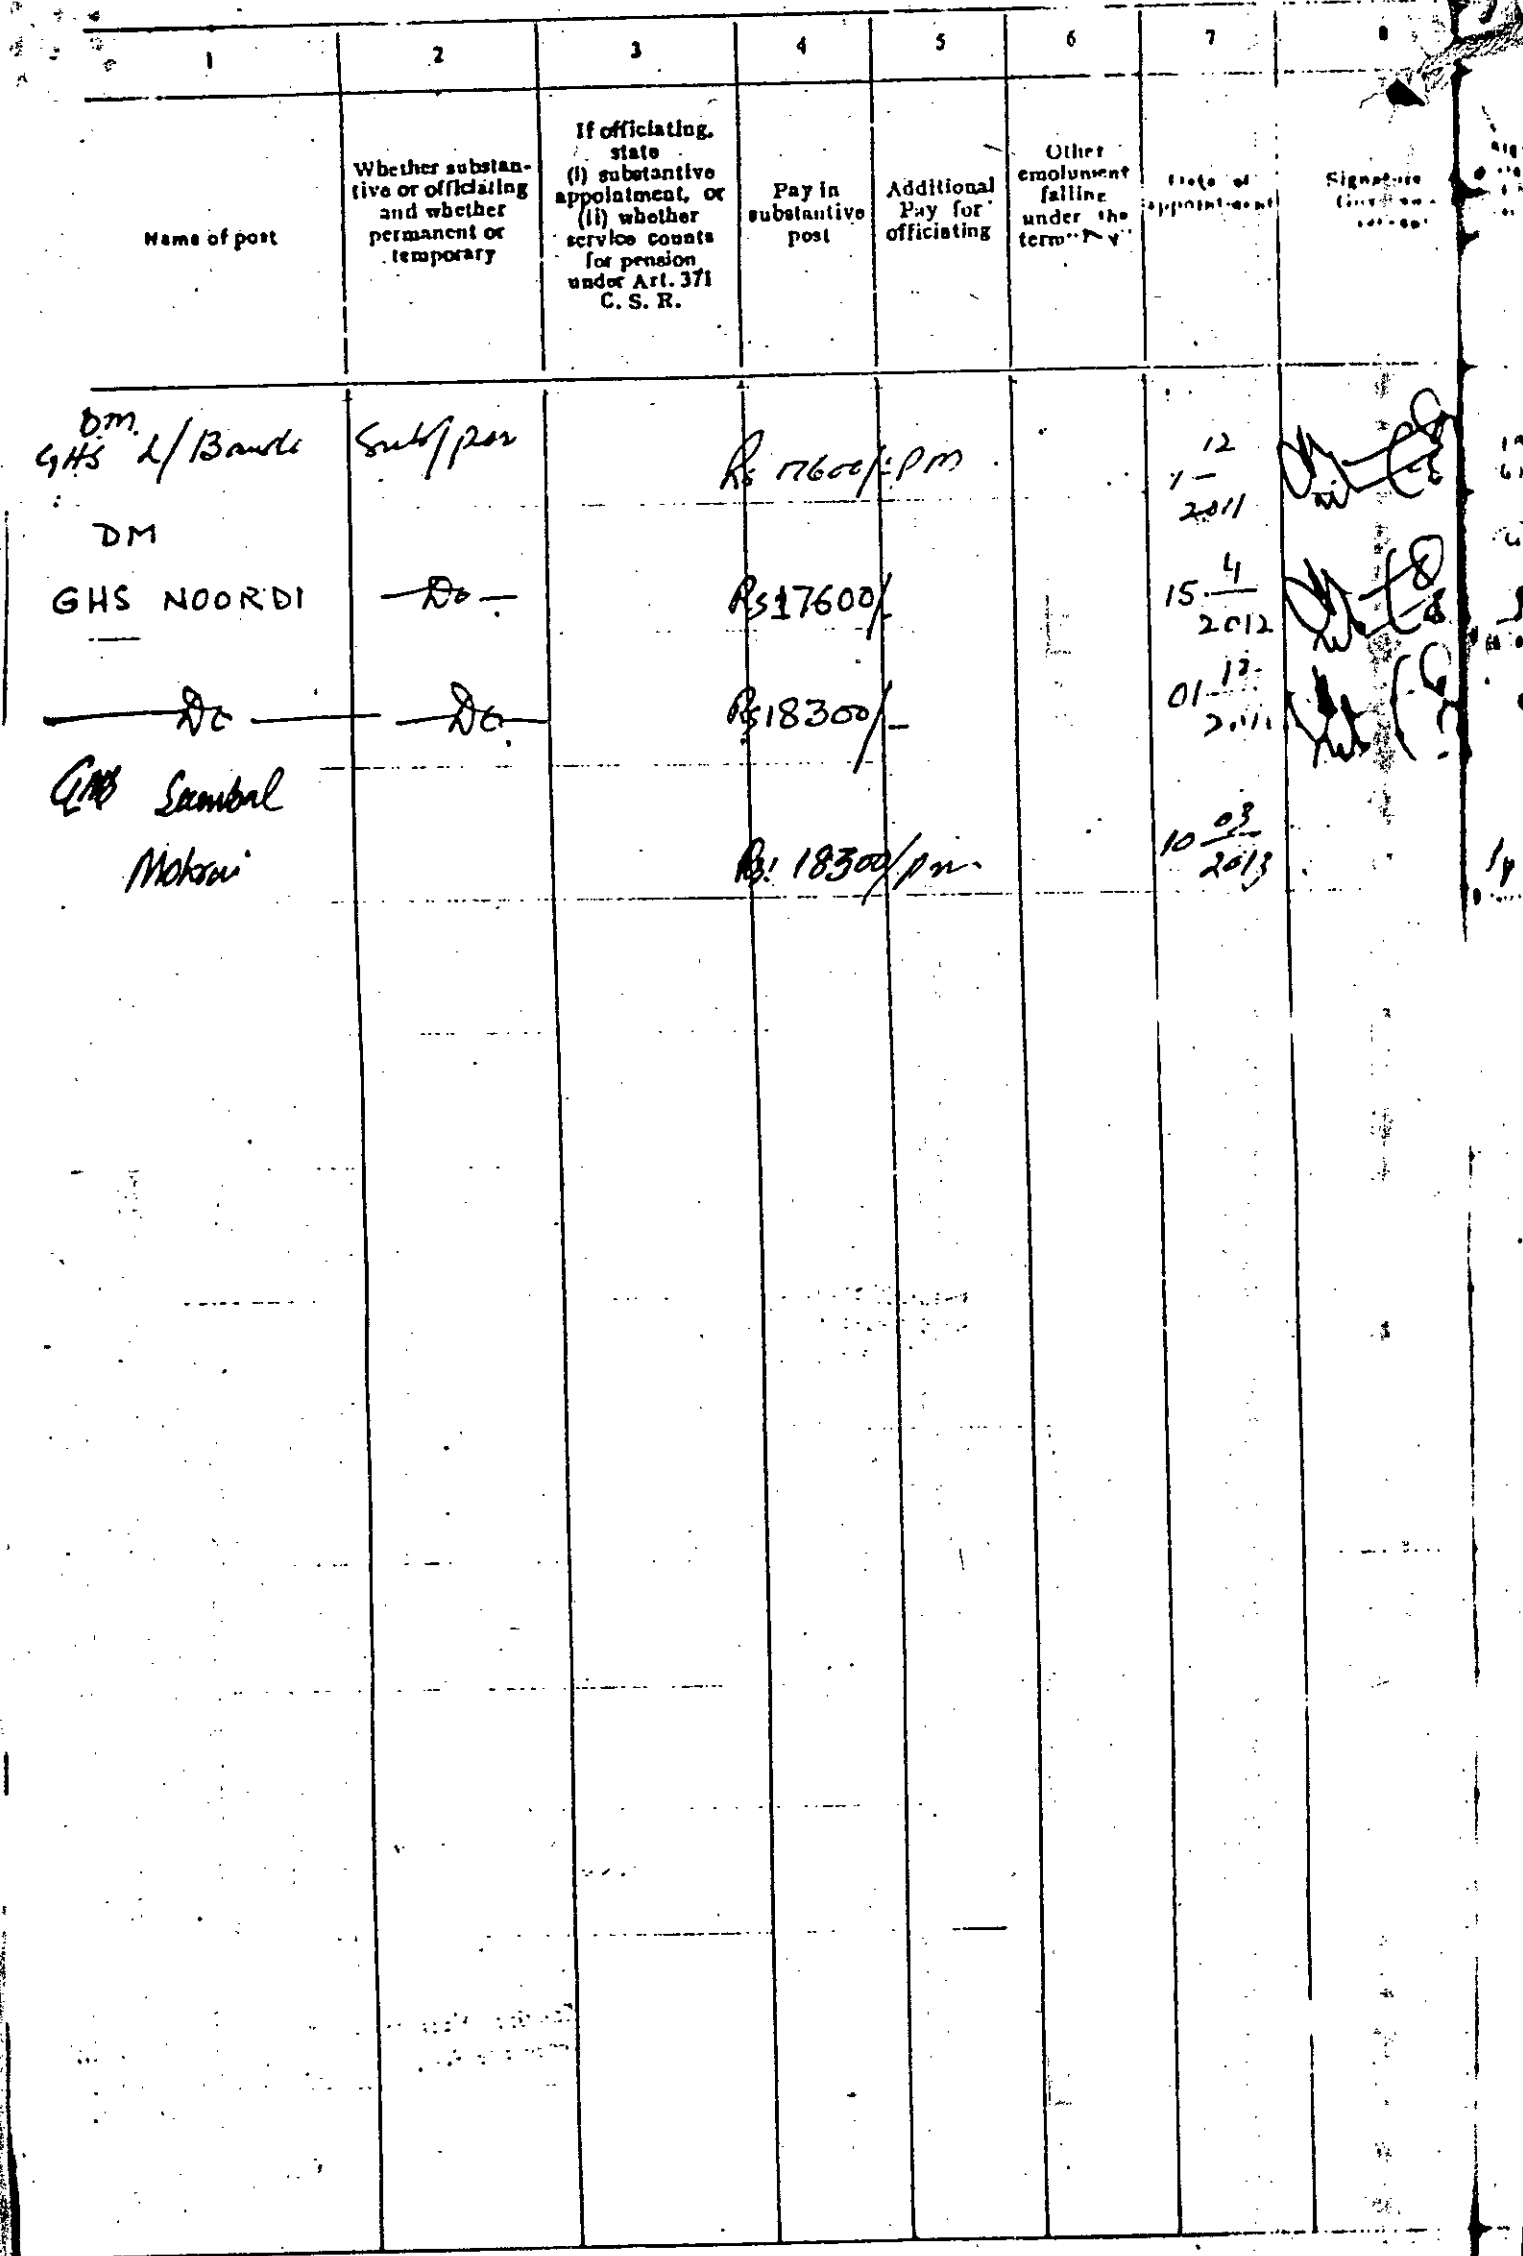 1 2 3 4 5 6 7 8
Name of post
Whether substan-
tive or officiating
and whether
permanent or
temporary
If officiating,
state
(i) substantive
appointment, or
(ii) whether
service counts
for pension
under Art. 371
C. S. R.
Pay in
substantive
post
Additional
Pay for
officiating
Other
emolument
falling
under the
term
Date of
appointment
Signature
DM.
GHS L/Bandi Sub/per Rs 17600/- PM 1 - 12 2011
DM
GHS NOORDI - Do - Rs 17600/- 15 - 4 2012
Do Do Rs 18300/- 01 - 12
GHS Sambal
Rs! 18300/pm 10 03 2013